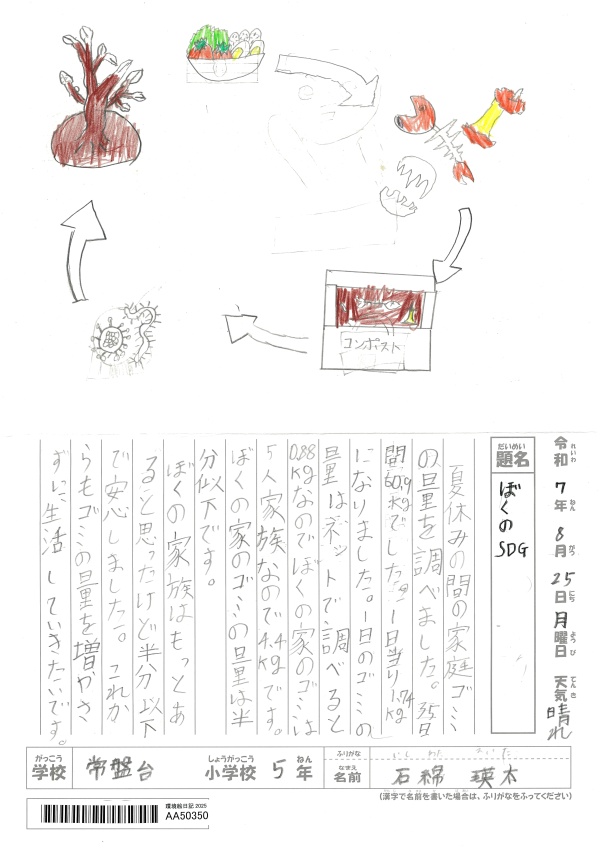 コンポスト
令和7年8月25日月曜日 天気晴れ
れいわ ねん がつ にち ようび てんき
だいめい
題名 ぼくのSDG
夏休みの間の家庭ゴミ
の量を調べました。35日
間60.9kgでした。1日当り1.74kg
になりました。1日のゴミの
量はネットで調べると
0.88kgなのでぼくの家のゴミは
5人家族なので4.4kgです。
ぼくの家のゴミの量は半
分以下です。
ぼくの家族はもっとあ
ると思ったけど半分以下
で安心しました。これか
らもゴミの量を増やさ
ずに生活していきたいです。
がっこう しょうがっこう ねん ふりがな
学校 常盤台 小学校 5年
なまえ
名前 石綿 瑛太
(漢字で名前を書いた場合は、ふりがなをふってください)
環境絵日記 2025
AA50350